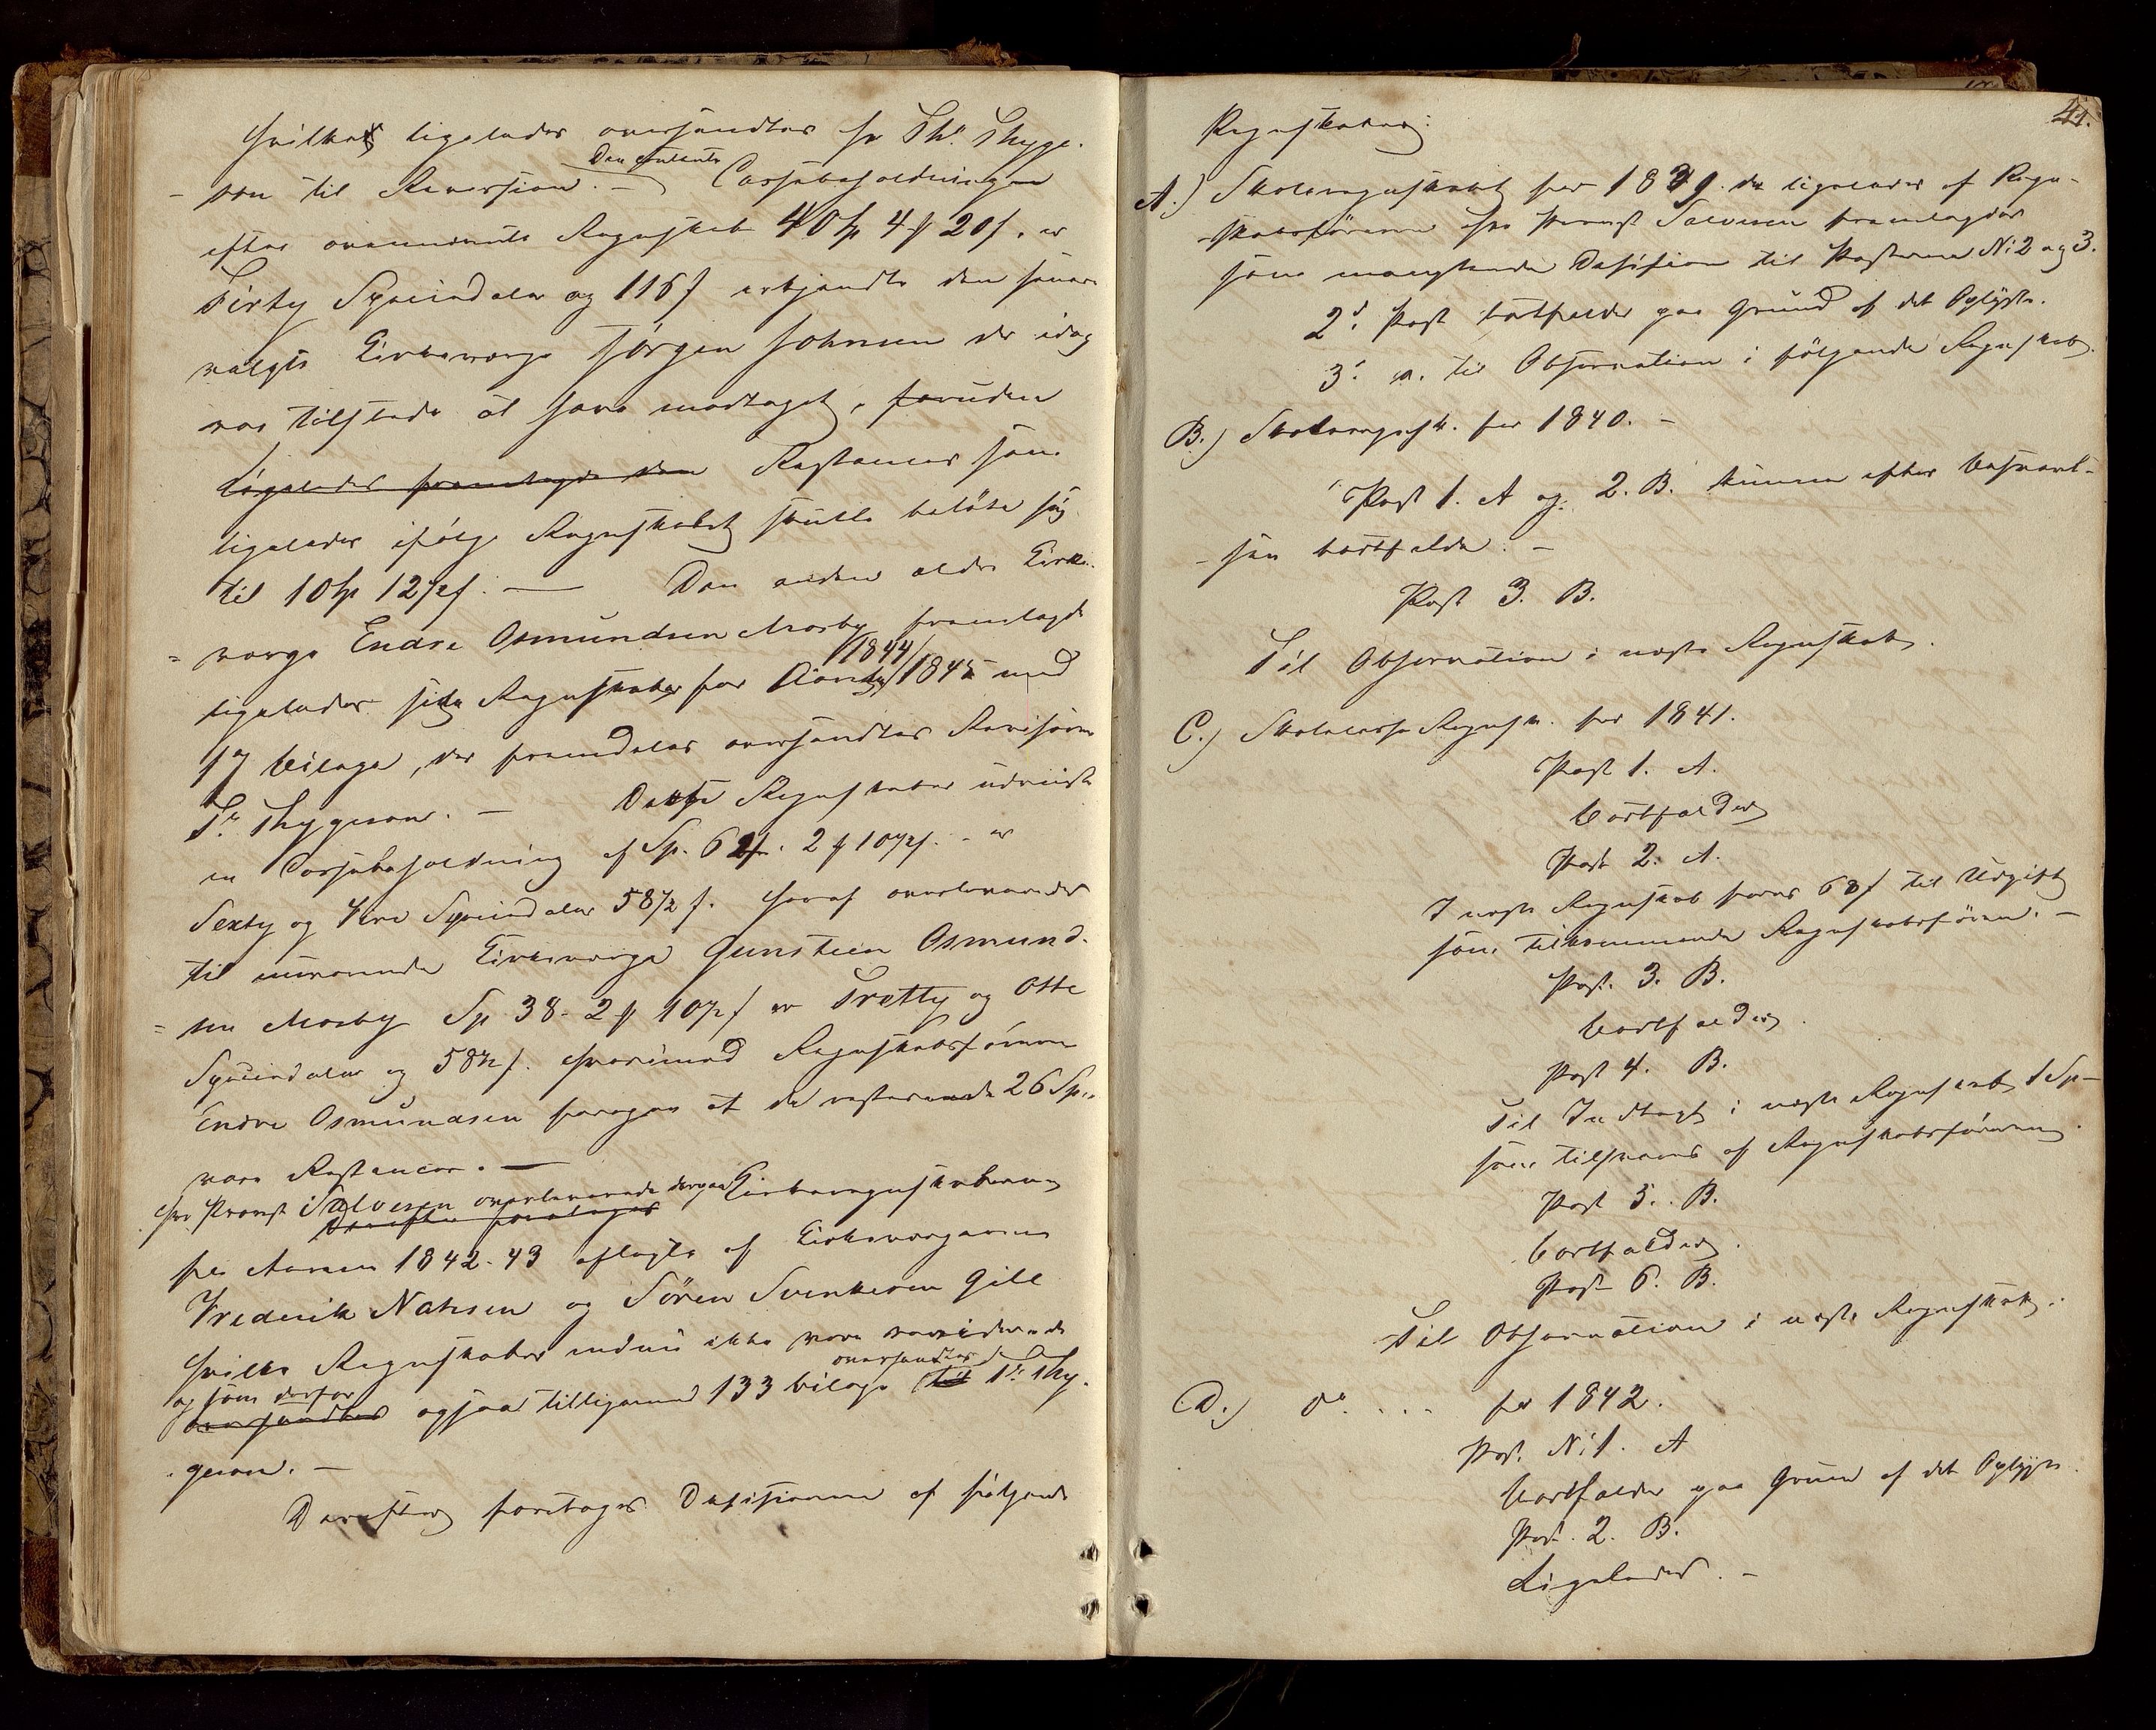 hvilket ligeledes oversendtes Hr Th. Thyge-
son til Revision. – Den contante Cassebeholdningen
efter ovennævnte Regnskab 40 Sp 4 ₰ 20 s. er
Firty Speciedaler og 116 s erkjendte den senere
valgte Kirkeværge Jørgen Johnsen der idag
var tilstede at have modtaget, foruden
ligeledes fremlagde den Restancer som
ligeledes ifølge Regnskabet skulle beløbe sig
til 10 Sp 12½ s. — Den anden ældre Kirke-
værge Endre Osmundsen Mosby fremlagde
ligeledes sine Regnskaber for Aarene 1844/1845 med
17 bilage, der fremdeles oversendtes Revisoren
Hr Thygeson. – Dette Regnskaber udviiste
en Cassebeholdning af Sp. 64. 2 ₰ 10½ s. – er
Sexty og Fire Speciedaler 58½ s. hvoraf overleveredes
til nuværende Kirkeværge Gunsteen Osmund-
sen Mosby Sp 38 - 2 ₰ 10½ s er Tretty og Otte
Speciedaler og 58½ s. hvorimod Regnskabsføreren
Endre Osmundsen foregav at de resterende 26 Sp.
være Restancer. —
Hr Provst Salvesen overleverede derpaa Kirkeregnskaberne
Derefter foretoges
for Aarene 1842-43 aflagte af Kirkeværgerne
Frederik Natvsen og Sören Svenkesen Gill
hvilke Regnskaber endnu ikke vare reviderede
og som derfor oversendtes ogsaa tilligemed 133 bilage oversendtes til Hr Thy-
geson. –
Derefter foretoges Decisionerne af følgende
41.
Regnskaber:
A.) Skoleregnskabet for 1839. da ligeledes af Regn-
skabsføreren Hr Provst Salvesen fremlagdes
som manglende Decision til Posterne No 2 og 3.
2d Post bortfalder paa Grund af det Oplyste.
3d " til Observation i følgende Regnskab.
B.) Skoleregnsk. for 1840. –
Post 1. A og 2. B. kunne efter Besvarel-
sen bortfalde. –
Post 3. B.
Til Observation i næste Regnskab.
C.) Skolecasse Regnsk. for 1841.
Post 1. A.
bortfalder
Post 2. A.
I næste Regnskab føres 68 s til Udgift
som tilkommende Regnskabsføreren. –
Post. 3. B.
bortfalder.
Post 4. B.
Til Indtægt i næste Regnskab 1 Sp –
som tilsvares af Regnskabsføreren.
Post 5. B.
bortfalder.
Post 6. B.
Til Observation i næste Regnskab.
D.) do . . . . for 1842.
Post. No 1. A
bortfalder paa Grund af det Oplyste.
Post. 2. B.
Ligeledes. –